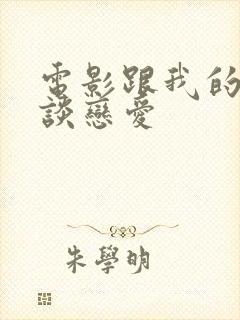 電影跟我的
談戀愛
朱學明